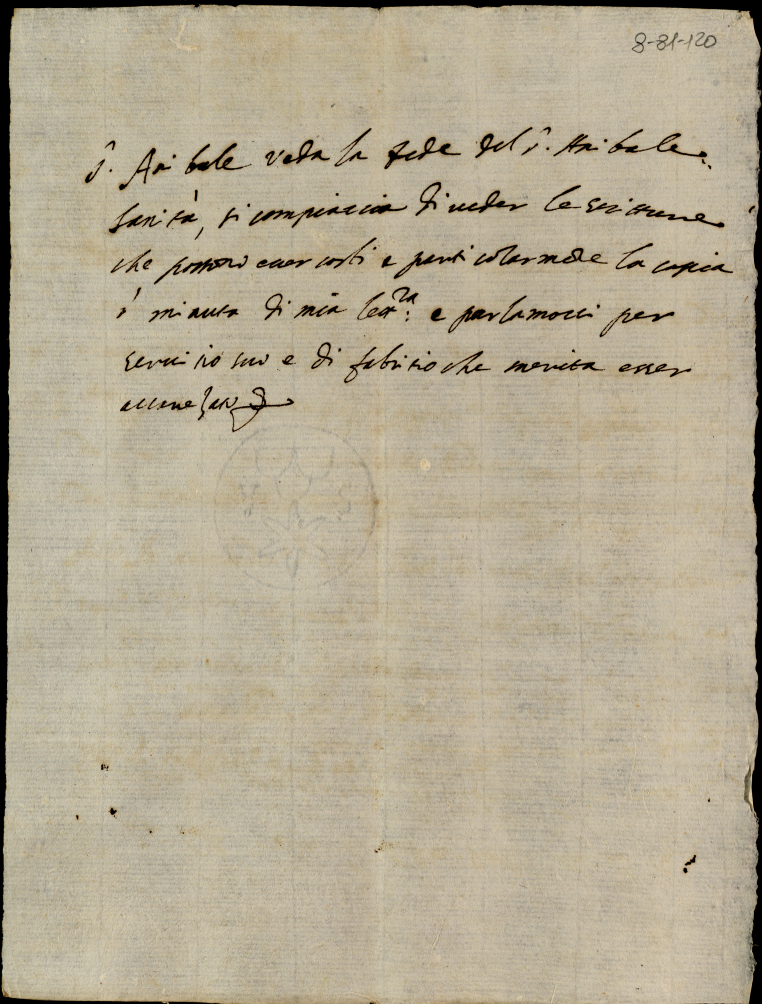 8-81-120
S.r Anibale veda la fede del S.r Anibale
Sanità, si compiaccia di veder le scritture
che possono esser costì e particolarmẽte la copia
ò minuta di mia lett.ra: e parlamoci per
servitio suo e di fabritio che merita esser
accarezato